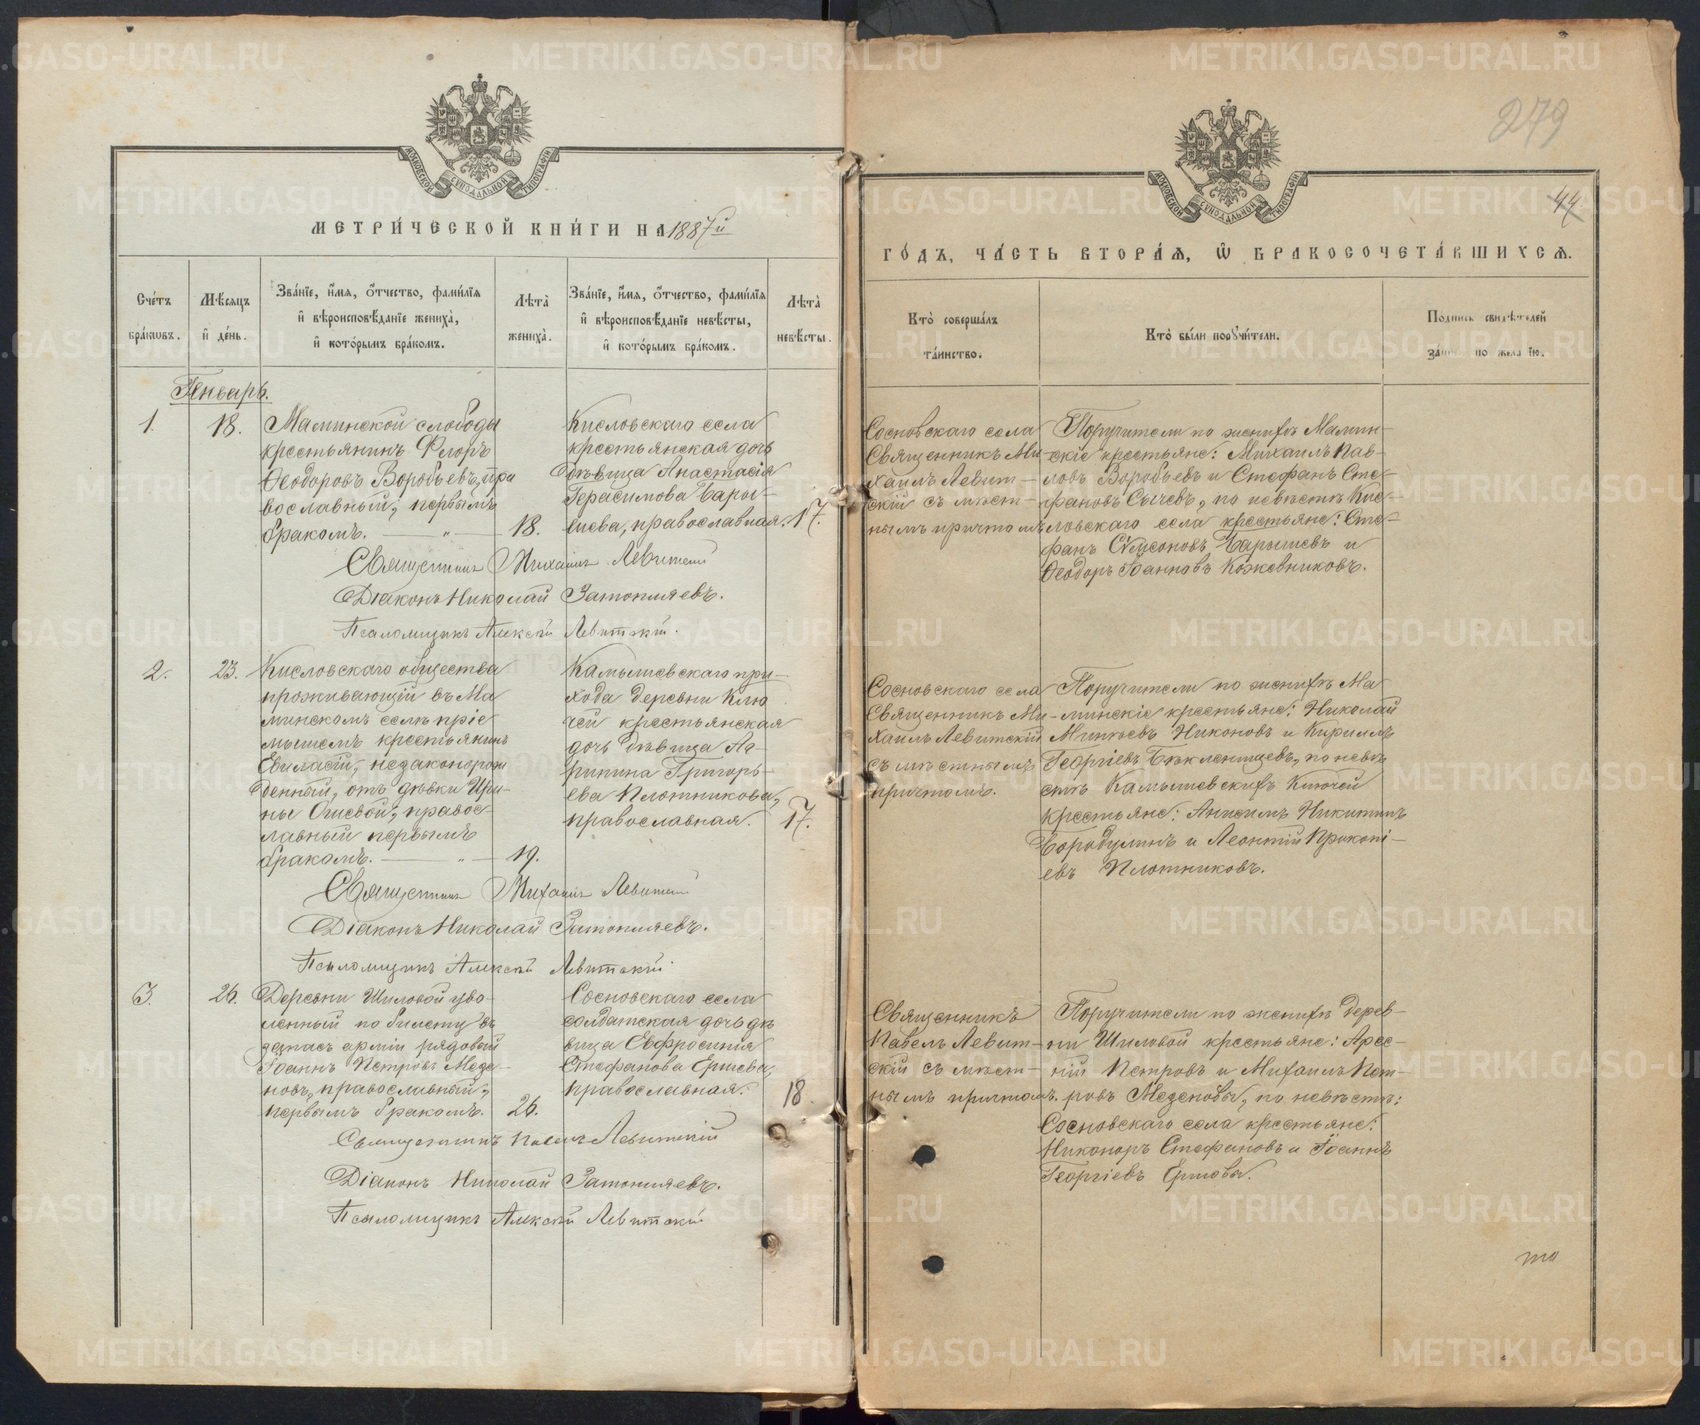 МЕТРИ́ЧЕСКОЙ КНИ́ГИ НА 1887й
Сче́тъ бра́кωвъ.
Мѣ́сѧцъ и҆ де́нь.
Зва́нїе, и҆́мѧ, ѻ҆́тчество, фами́лїѧ и҆ вѣроисповѣ́данїе жениха̀, и҆ кото́рымъ бра́комъ.
Лѣта̀ жениха̀.
Зва́нїе, и҆́мѧ, ѻ҆́тчество, фами́лїѧ и҆ вѣроисповѣ́данїе невѣ́сты, и҆ кото́рымъ бра́комъ.
Лѣта̀ невѣ́сты.
Генварь.
1.
18.
Маминской слободы
крестьянинъ Флоръ
Ѳеодоровъ Воробьевъ, пра
вославный, первымъ
бракомъ. — „ — 18.
Кисловскаго села
крестьянская дочь
дѣвица Анастасія
Герасимова Бары-
шева, православная. 17.
Священникъ Михаилъ Левитскій
Діаконъ Николай Затопляевъ.
Псаломщикъ Алексѣй Левитскій.
2.
23.
Кисловскаго общества
проживающій въ Ма
минскомъ селѣ пріе
мышемъ крестьянинъ
незаконорож
денный, отъ дѣвки Ири-
ны правос-
лавный первымъ
бракомъ. — „ — 19.
Камышевскаго при-
хода деревни Клю
чей крестьянская
дочь дѣвица Аг-
рипина Григорь-
ева Плотникова,
православная. 17.
Священникъ Михаилъ Левитскій
Діаконъ Николай Затопляевъ.
Псаломщикъ Алексѣй Левитскій
3.
26.
Деревни Шиловой уво-
ленный по билету въ
запасъ арміи рядовой
Іоаннъ Петровъ Мезе-
новъ, православный,
первымъ бракомъ. 26.
Сосновскаго села
солдатская дочь дѣ
вица Евфросинія
Стефанова Ершева,
православная. 18
Священникъ Павелъ Левитскій
Діаконъ Николай Затопляевъ.
Псаломщикъ Алексѣй Левитскій
279
44
ГО́ДЪ, ЧА́СТЬ ВТОРА́Ѧ, Ѡ҆ БРАКОСОЧЕТА́ВШИХСѦ.
Кто̀ соверша́лъ та́инство.
Кто̀ бы́ли порꙋчи́тели.
Подпись свидѣ́телей за́писи по жела́нїю.
Сосновскаго села
Священникъ Ми-
хаилъ Левит-
скій съ мѣст-
нымъ причтомъ
Поручители по женихѣ Мамин-
скіе крестьяне: Михаилъ Пав-
ловъ Воробьевъ и Стефанъ Сте-
фановъ Сычевъ, по невѣстѣ Кис-
ловскаго села крестьяне: Сте-
фанъ Сѵмеоновъ Барышевъ и
Ѳеодоръ Іоанновъ Кожевниковъ.
Сосновскаго села
Священникъ Ми-
хаилъ Левитскій
съ мѣстнымъ
причтомъ.
Поручители по женихѣ Ма
минскіе крестьяне: Николай
Никоновъ и Кириллъ
Георгіевъ Бекленищевъ, по невѣ
стѣ Камышевскихъ Ключей
крестьяне: Анисимъ Никитинъ
Бородулинъ и Леонтій Прокопі-
евъ Плотниковъ.
Священникъ
Павелъ Левит-
скій съ мѣст-
нымъ причтомъ.
Поручители по женихѣ Дерев-
ни Шиловой крестьяне: Арсе-
ній Петровъ и Михаилъ Пет-
ровъ Мезеновы, по невѣстѣ:
Сосновскаго села крестьяне:
Никаноръ Стефановъ и Іоаннъ
Георгіевъ Ершовы.
МОСКОВСКОЙ СУНОДАЛЬНОЙ ТИПОГРАФІИ
МОСКОВСКОЙ СУНОДАЛЬНОЙ ТИПОГРАФІИ
METRIKI.GASO-URAL.RU